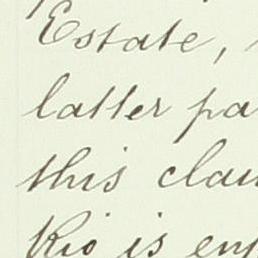 Estate,
latter pa
this clau
Rio is en